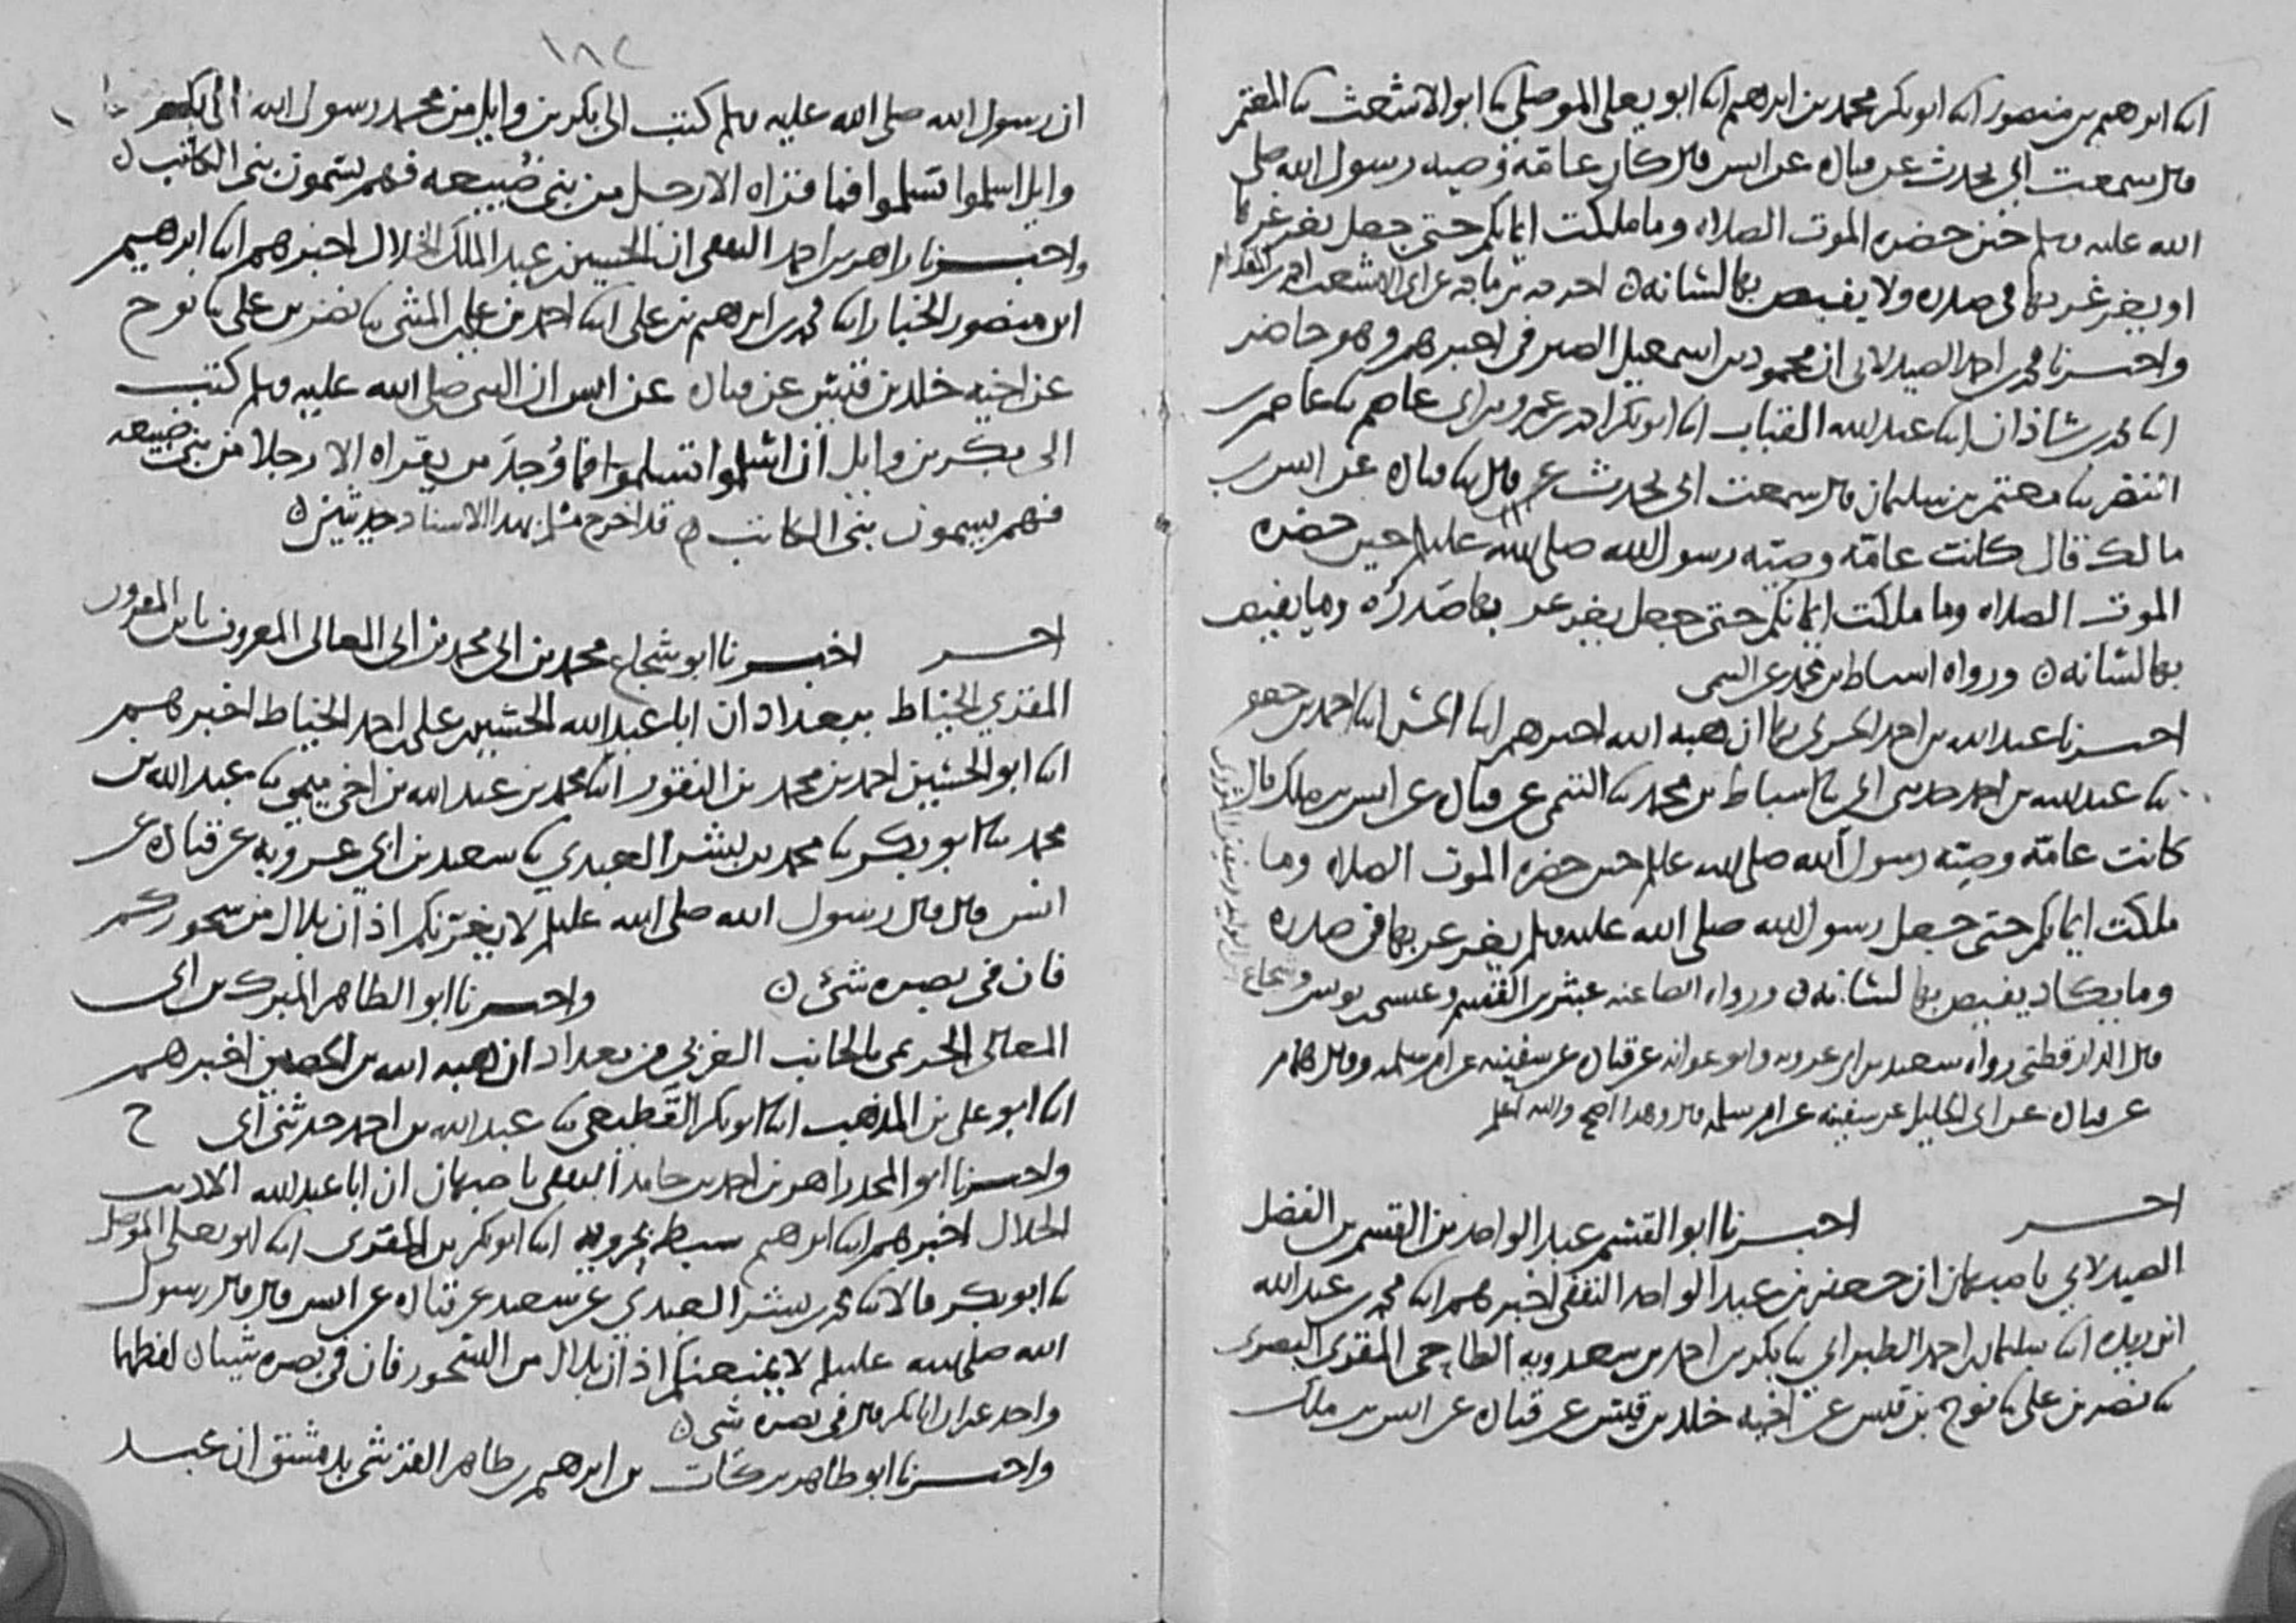 انا ابرهيم بن منصور انا ابو بكر محمد بن ابرهيم انا ابو يعلى الموصلي نا ابو الاشعث نا المعتمر
قال سمعت ابي يحدث عن قتادة عن انس قال كان عامة وصية رسول الله صلى
الله عليه وسلم حين حضره الموت الصلاة وما ملكت ايمانكم حتى جعل يغرغر بها
او يغرغر بها في صدره ولا يفيص بها لسانه اخرجه بن ماجه عن ابي الاشعث احمد بن المقدام
واخبرنا محمد بن احمد الصيدلاني ان محمود بن اسمعيل الصيرفي اخبرهم وهو حاضر
انا محمد بن شاذان انا عبد الله القباب انا ابو بكر احمد بن عمرو بن ابي عاصم نا عاصم بن
النضر نا معتمر بن سليمان قال سمعت ابي يحدث قال نا قتادة عن انس بن
مالك قال كانت عامة وصية رسول الله صلى الله عليه وسلم حين حضره
الموت الصلاة وما ملكت ايمانكم حتى جعل يغرغر بها صدره وما يفيص
بها لسانه ورواه اسباط بن محمد عن التيمي
اخبرنا عبد الله بن احمد الحربي بها ان هبة الله اخبرهم انا الحسن انا احمد بن جعفر
نا عبد الله بن احمد حدثني ابي نا اسباط بن محمد نا التيمي عن قتادة عن انس بن ملك قال
كانت عامة وصية رسول الله صلى الله عليه وسلم حين حضره الموت الصلاة وما
ملكت ايمانكم حتى جعل رسول الله صلى الله عليه وسلم يغرغر بها في صدره
وما يكاد يفيص بها لسانه ورواه ايضا عنه عبثر بن القسم وعيسى بن يونس وشجاع
قال الدارقطني رواه سعيد بن ابي عروبة وابو عوانه عن قتادة عن سفينه عن ام سلمه وقال همام
عن قتادة عن ابي الخليل عن سفينه عن ام سلمه قال وهذا اصح والله اعلم
اخر اخبرنا ابو القسم عبد الواحد بن القسم بن الفضل
الصيدلاني باصبهان ان جعفر بن عبد الواحد الثقفي اخبرهم انا محمد بن عبد الله
ابن ريذه انا سليمان بن احمد الطبراني نا بكر بن احمد بن سعدويه الطاحي المقرى البصري
نا نصر بن علي نا نوح بن قيس عن اخيه خلد بن قيس عن قتادة عن انس بن ملك
١٨٢
ان رسول الله صلى الله عليه وسلم كتب الى بكر بن وايل من محمد رسول الله الى بكر بن
وايل اسلموا تسلموا فما قراه الا رجل من بني ضبيعه فهم يسمون بني الكاتب
واخبرنا زاهر بن احمد الثقفي ان الحسين بن عبد الملك الخلال اخبرهم انا ابرهيم
ابن منصور الخباز انا محمد بن ابرهيم بن علي انا احمد بن علي بن المثنى نا نصر بن علي نا نوح
عن اخيه خلد بن قيس عن قتادة عن انس ان النبي صلى الله عليه وسلم كتب
الى بكر بن وايل ان اسلموا تسلموا فما وجد من يقراه الا رجلا من بني ضبيعه
فهم يسمون بني الكاتب قد اخرج مسلم بهذا الاسناد حديثين
اخر اخبرنا ابو شجاع محمد بن ابي محمد بن ابي المعالي المعروف بابن المقرون
المقري الخياط ببغداد ان ابا عبد الله الحسين بن علي بن احمد الخياط اخبرهم
انا ابو الحسين احمد بن محمد بن النقور انا محمد بن عبد الله بن اخي ميمي نا عبد الله بن
محمد نا ابو بكر نا محمد بن بشر العبدي نا سعيد بن ابي عروبة عن قتادة عن
انس قال قال رسول الله صلى الله عليه وسلم لا يغرنكم اذان بلال من سحوركم
فان في بصره شئ واخبرنا ابو الطاهر المبرك بن ابي
المعالي الحريمي بالجانب الغربي من بغداد ان هبة الله بن الحصين اخبرهم
انا ابو علي بن المذهب انا ابو بكر القطيعي نا عبد الله بن احمد حدثني ابي ح
واخبرنا ابو المجد زاهر بن احمد بن حامد الثقفي باصبهان ان ابا عبد الله الاديب
الخلال اخبرهم انا ابرهيم سبط بحرويه انا ابو بكر بن المقرى انا ابو يعلى الموصلي
نا ابو بكر قالا نا محمد بن بشر العبدي عن سعيد عن قتادة عن انس قال قال رسول
الله صلى الله عليه وسلم لا يمنعنكم اذان بلال من السحور فان في بصره شيئا لفظهما
واحد غير ان ابا بكر قال في بصره شي
واخبرنا ابو طاهر بركات بن ابرهيم بن طاهر القرشي بدمشق ان عبد